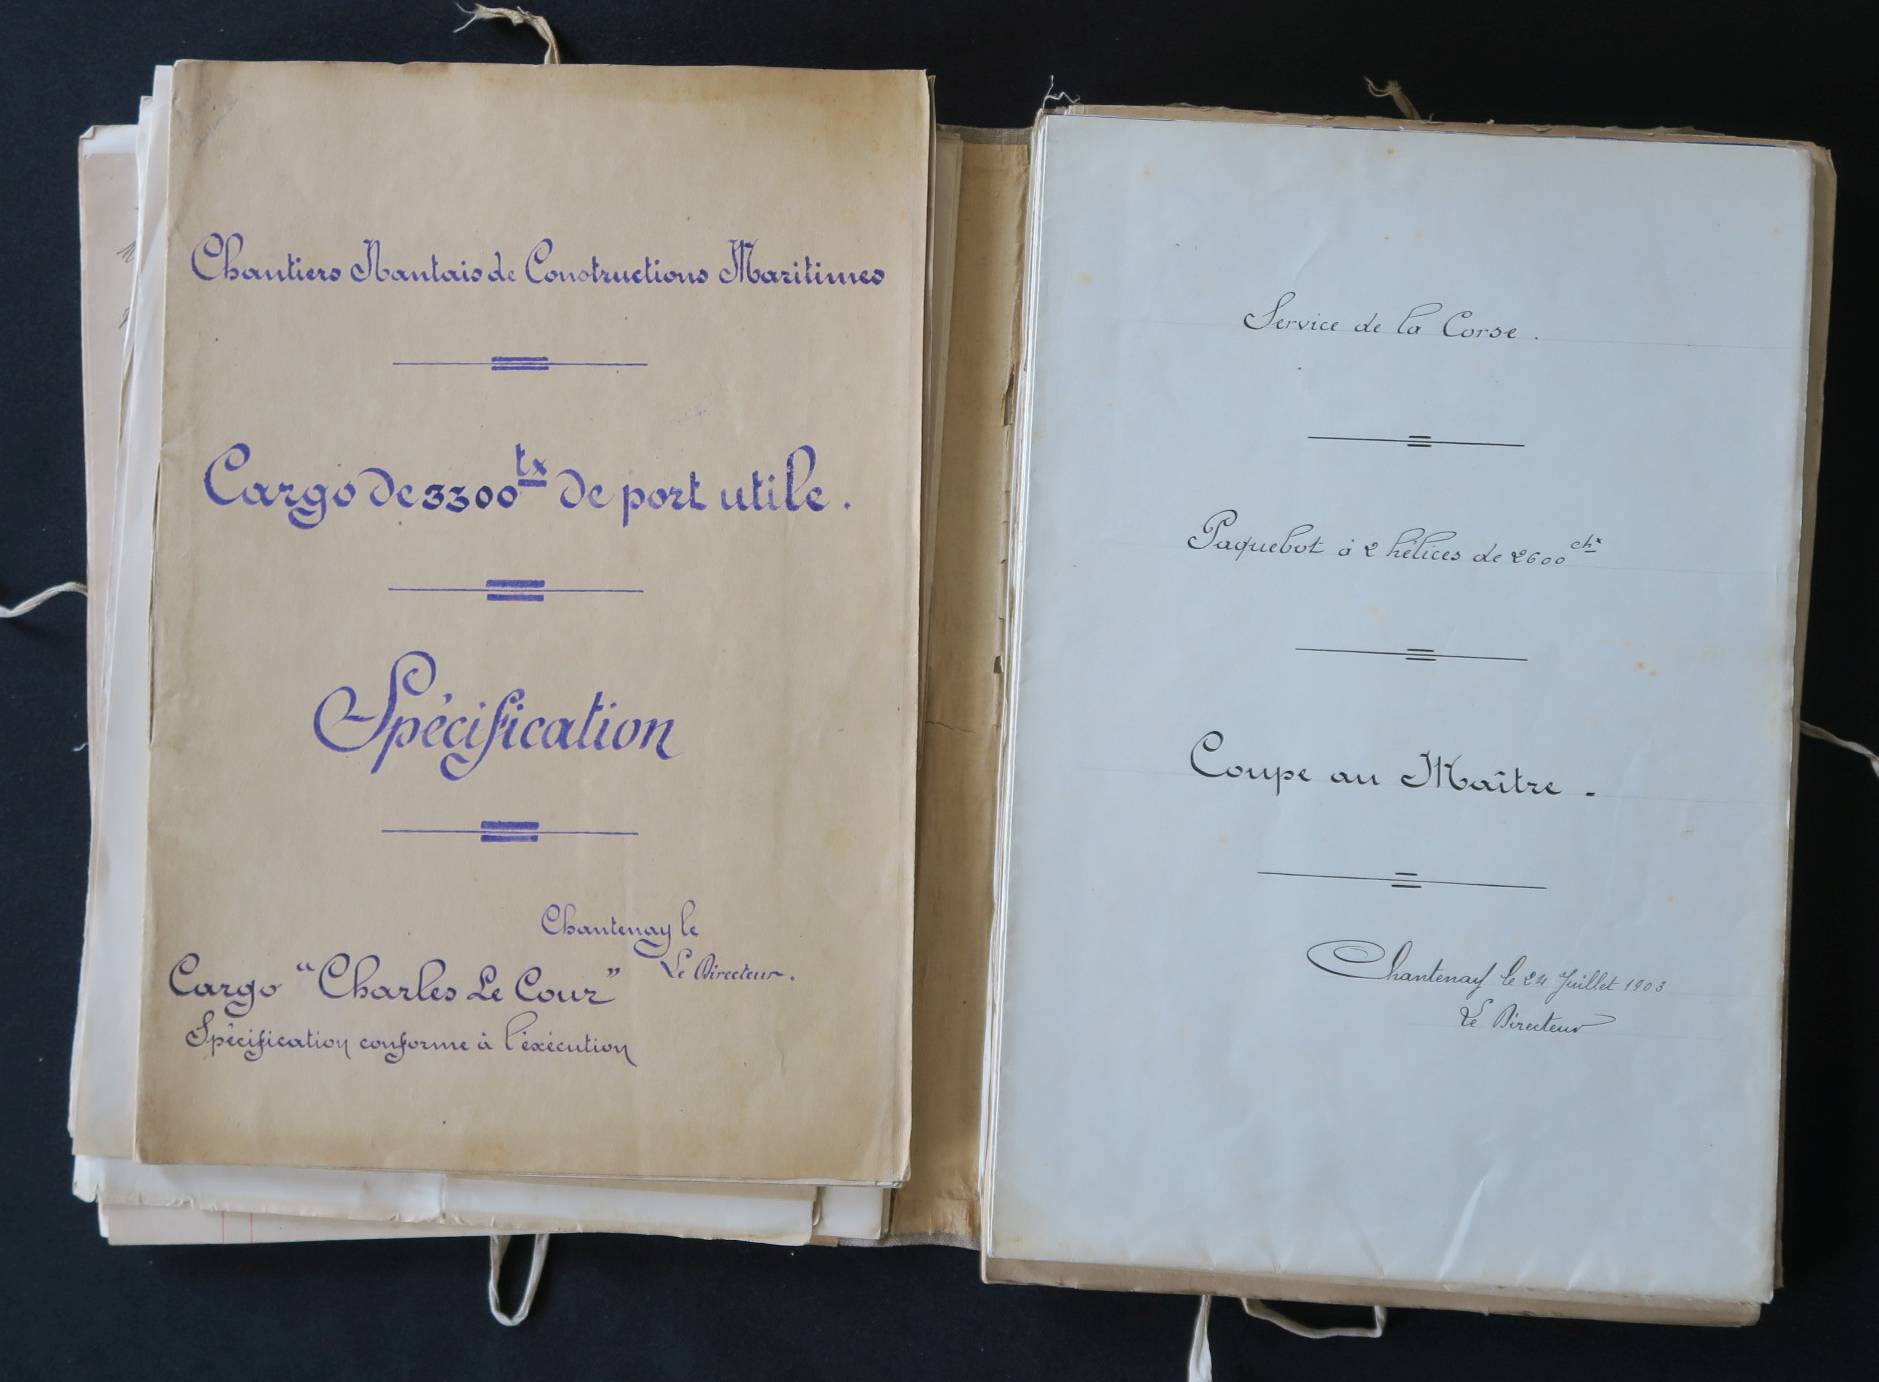 Chantiers Nantais de Constructions Maritimes
Cargo de 3300tx de port utile.
Spécification
Chantenay le
Le Directeur.
Cargo "Charles Le Cour"
Spécification conforme à l'éxécution
Service de la Corse.
Paquebot à 2 hélices de 2600 chx
Coupe au Maître -
Chantenay le 24 Juillet 1903
Le Directeur